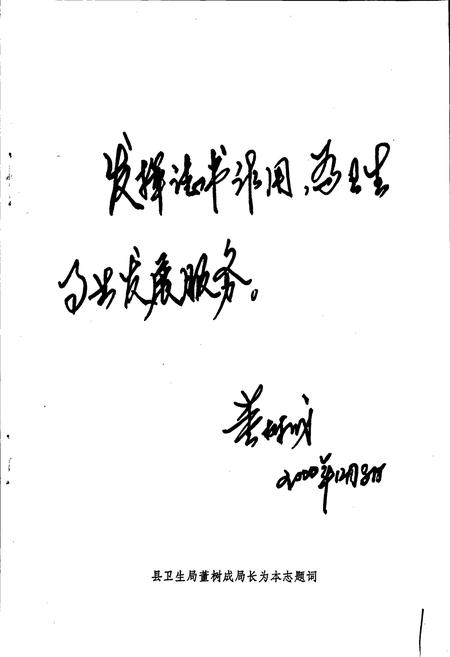 发挥志书作用，为卫生
事业发展服务。
董树成
2000年12月31日
县卫生局董树成局长为本志题词